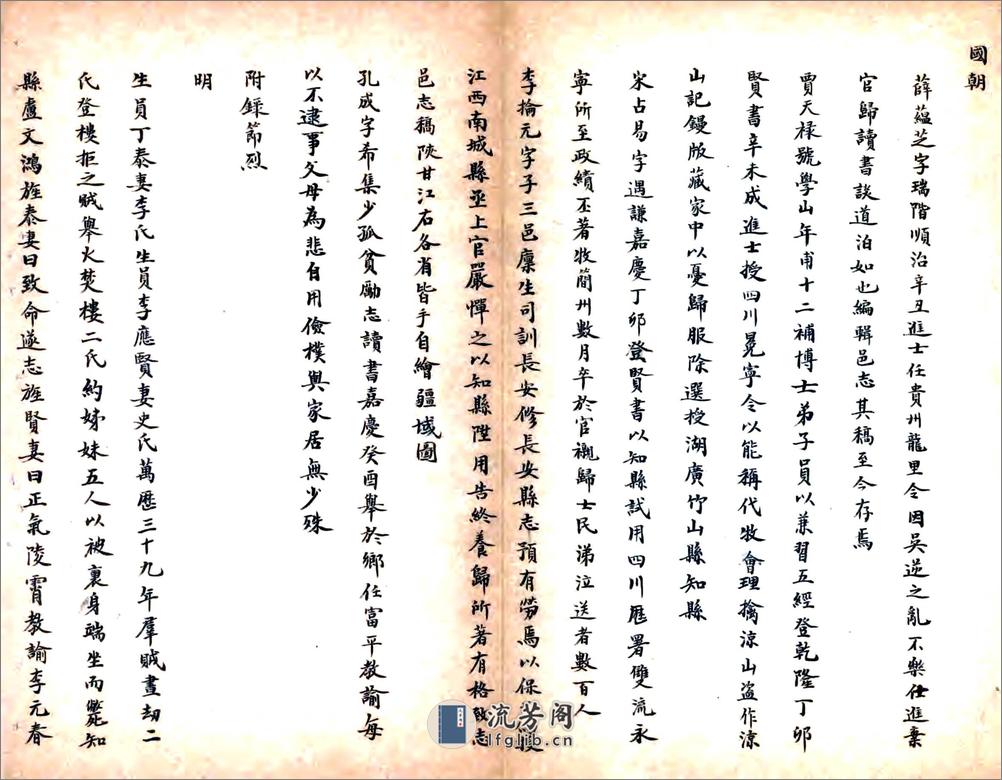 國朝
薛蘊芝字瑞階順治辛丑進士任貴州龍里令因吳逆之亂不樂仕進棄
官歸讀書談道泊如也編輯邑志其稿至今存焉
賈天祿號學山年甫十二補博士弟子員以兼習五經登乾隆丁卯
賢書辛未成進士授四川冕寧令以能稱代牧會理擒涼山盜作涼
山記鏝版藏家中以憂歸服除選授湖廣竹山縣知縣
宋占易字遇謙嘉慶丁卯登賢書以知縣試用四川歷署雙流永
寧所至政績丕著牧簡州數月卒於官櫬歸士民涕泣送者數百人
李掄元字子三邑廩生司訓長安修長安縣志預有勞焉以保授
江西南城縣丞上官嚴憚之以知縣陞用告終養歸所著有格致志
邑志稿陝甘江右各省皆手自繪疆域圖
孔成字希集少孤貧勵志讀書嘉慶癸酉舉於鄉任富平教諭每
以不逮事父母為悲自用儉樸與家居無少殊
附錄節烈
明
生員丁泰妻李氏生員李應賢妻史氏萬歷三十九年羣賊晝劫二
氏登樓拒之賊舉火焚樓二氏約娣妹五人以被裹身端坐而斃知
縣盧文鴻旌泰妻曰致命遂志旌賢妻曰正氣陵霄教諭李元春
流芳阁
lfglib.cn